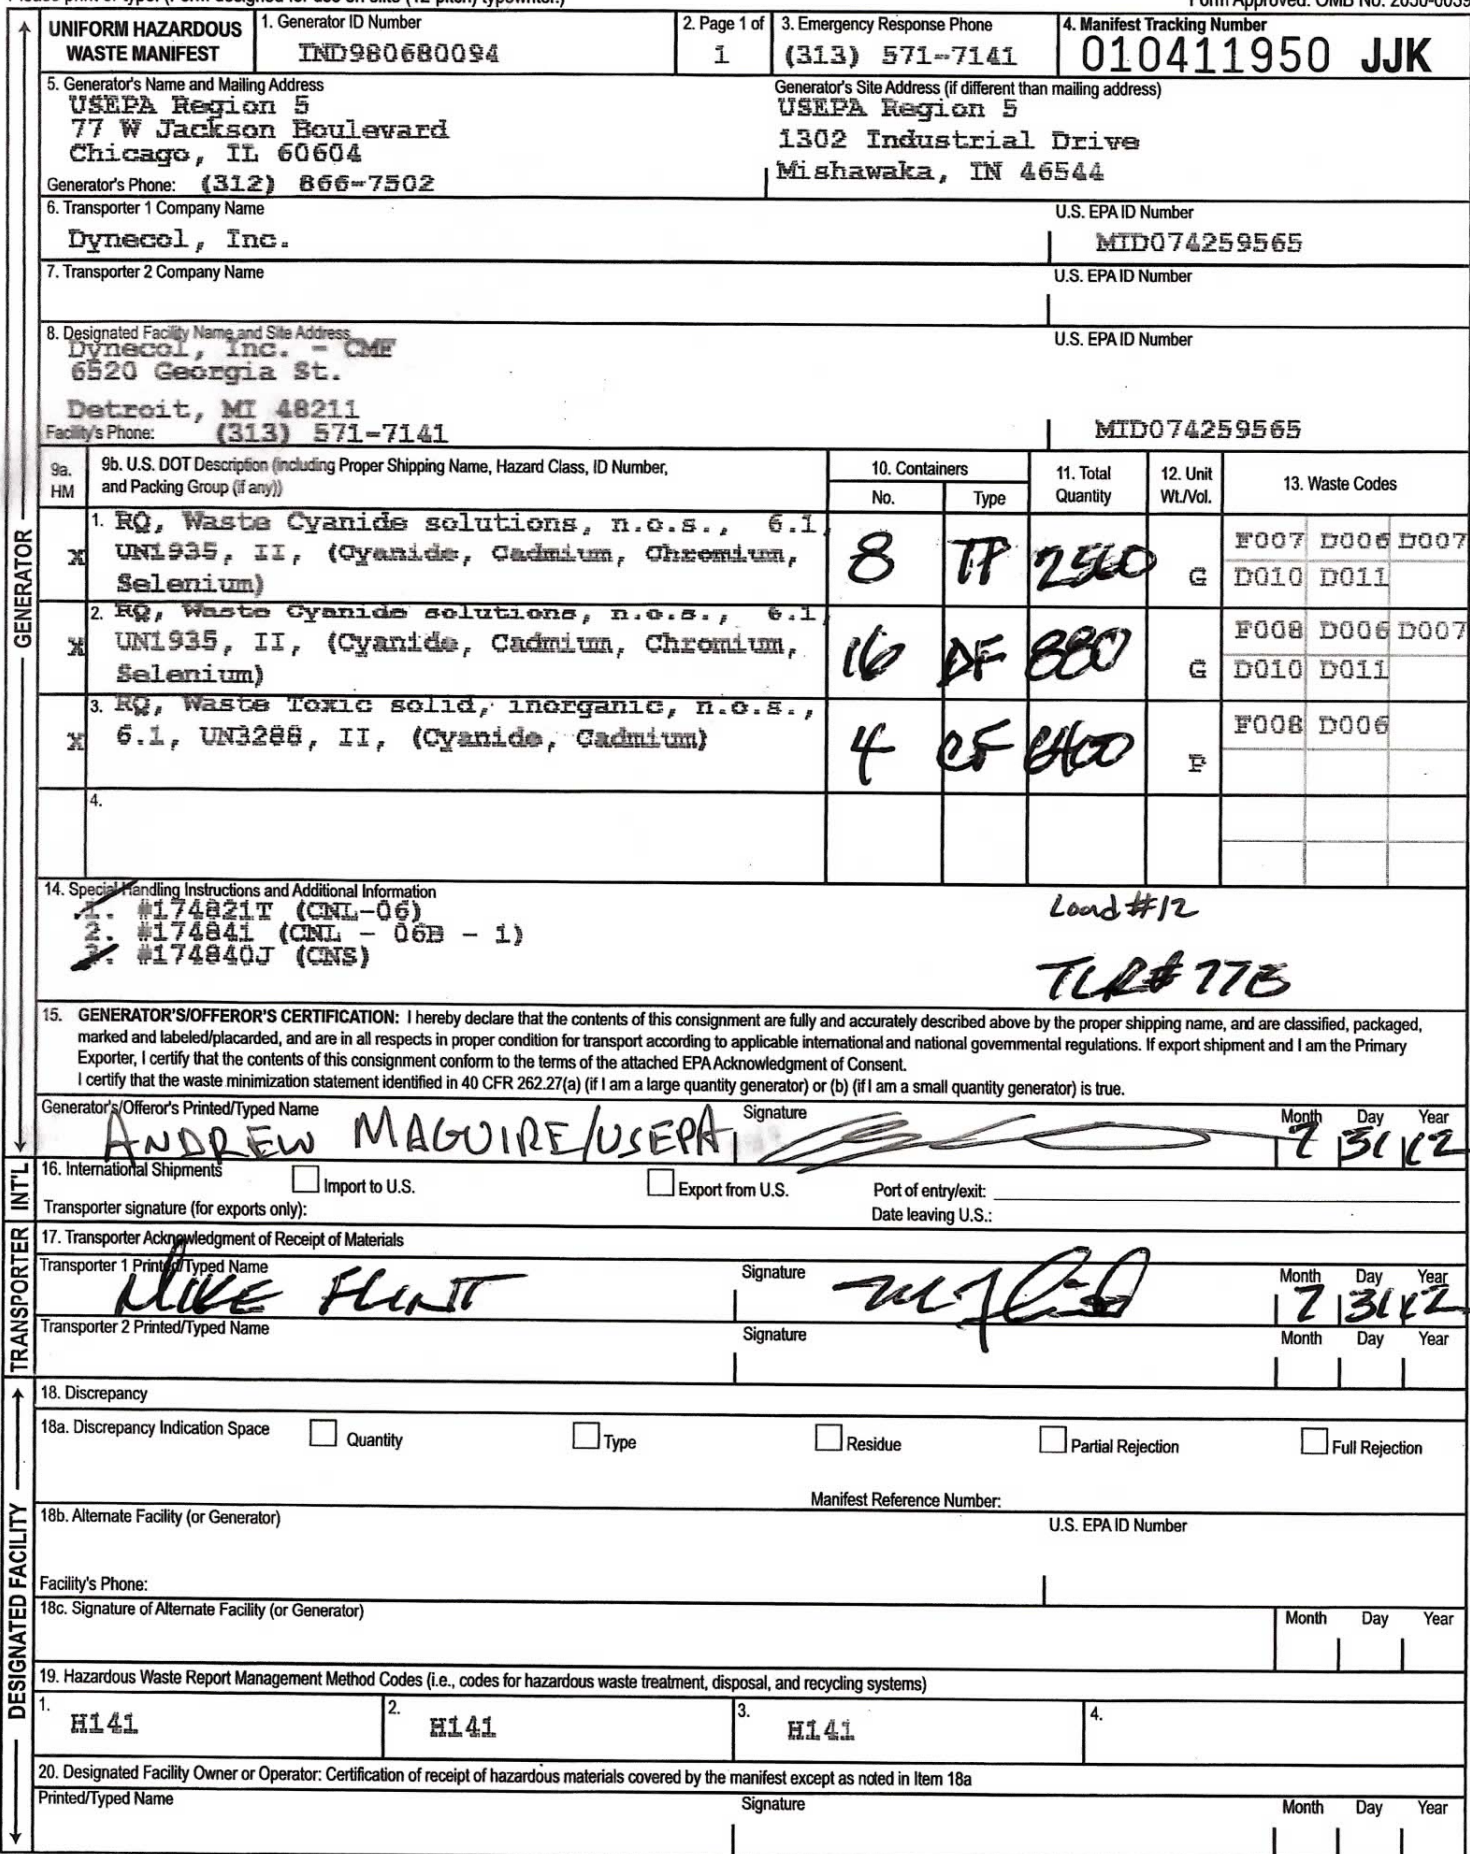 Form Approved. OMB No. 2050-0039
UNIFORM HAZARDOUS WASTE MANIFEST
1. Generator ID Number
IND980680094
2. Page 1 of
1
3. Emergency Response Phone
(313) 571-7141
4. Manifest Tracking Number
010411950 JJK
5. Generator's Name and Mailing Address
USEPA Region 5
77 W Jackson Boulevard
Chicago, IL 60604
Generator's Phone: (312) 866-7502
Generator's Site Address (if different than mailing address)
USEPA Region 5
1302 Industrial Drive
Mishawaka, IN 46544
6. Transporter 1 Company Name
Dynecol, Inc.
U.S. EPA ID Number
MID074259565
7. Transporter 2 Company Name
U.S. EPA ID Number
8. Designated Facility Name and Site Address
Dynecol, Inc. - CMF
6520 Georgia St.
Detroit, MI 48211
Facility's Phone: (313) 571-7141
U.S. EPA ID Number
MID074259565
9a. HM
9b. U.S. DOT Description (including Proper Shipping Name, Hazard Class, ID Number,
and Packing Group (if any))
10. Containers
No.
Type
11. Total Quantity
12. Unit Wt./Vol.
13. Waste Codes
GENERATOR
X
1. RQ, Waste Cyanide solutions, n.o.s., 6.1,
UN1935, II, (Cyanide, Cadmium, Chromium,
Selenium)
8 TP G
F007 D006 D007
D010 D011
X
2. RQ, Waste Cyanide solutions, n.o.s., 6.1,
UN1935, II, (Cyanide, Cadmium, Chromium,
Selenium)
16 DF 880 G
F008 D006 D007
D010 D011
X
3. RQ, Waste Toxic solid, inorganic, n.o.s.,
6.1, UN3288, II, (Cyanide, Cadmium)
4 CF P
F008 D006
4.
14. Special Handling Instructions and Additional Information
1. #174821T (CNL-06)
2. #174841 (CNL - 06B - 1)
3. #174840J (CNS)
Load #12
TLR# 77B
15. GENERATOR'S/OFFEROR'S CERTIFICATION: I hereby declare that the contents of this consignment are fully and accurately described above by the proper shipping name, and are classified, packaged,
marked and labeled/placarded, and are in all respects in proper condition for transport according to applicable international and national governmental regulations. If export shipment and I am the Primary
Exporter, I certify that the contents of this consignment conform to the terms of the attached EPA Acknowledgment of Consent.
I certify that the waste minimization statement identified in 40 CFR 262.27(a) (if I am a large quantity generator) or (b) (if I am a small quantity generator) is true.
Generator's/Offeror's Printed/Typed Name
ANDREW MAGUIRE/USEPA
Signature
Month Day Year
7 31 12
INT'L
16. International Shipments
Import to U.S.
Export from U.S.
Port of entry/exit:
Transporter signature (for exports only):
Date leaving U.S.:
TRANSPORTER
17. Transporter Acknowledgment of Receipt of Materials
Transporter 1 Printed/Typed Name
MIKE FLINT
Signature
Month Day Year
7 31 12
Transporter 2 Printed/Typed Name
Signature
Month Day Year
DESIGNATED FACILITY
18. Discrepancy
18a. Discrepancy Indication Space
Quantity
Type
Residue
Partial Rejection
Full Rejection
Manifest Reference Number:
18b. Alternate Facility (or Generator)
U.S. EPA ID Number
Facility's Phone:
18c. Signature of Alternate Facility (or Generator)
Month Day Year
19. Hazardous Waste Report Management Method Codes (i.e., codes for hazardous waste treatment, disposal, and recycling systems)
1. H141
2. H141
3. H141
4.
20. Designated Facility Owner or Operator: Certification of receipt of hazardous materials covered by the manifest except as noted in Item 18a
Printed/Typed Name
Signature
Month Day Year